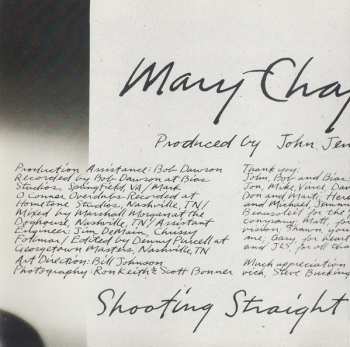 Mary-Chap
Produced by John Jen
Production Assistance: Bob Dawson
Recorded by Bob Dawson at Bias
Studios, Springfield, VA/Mark
O'Connor Overdubs Recorded at
Hometone Studios, Nashville, TN/
Mixed by Marshall Morgan at the
Doghouse, Nashville, TN/Assistant
Engineer: Jim DeMain, Chrissy
Follmar/Edited by Denny Purcell at
Georgetown Masters, Nashville, TN
Art Direction: Bill Johnson
Photography: Ron Keith & Scott Bonner
Thank you:
John, Bob and Bias
Jon, Mike, Vince, Dav
Don and Mark, Here
and Michael, Jenni
Beausoleil for the l
company, Matt for
vision, Dawn, you
me, Gary for hear
and JCS, for all the
Much appreciation
vich, Steve Bucking
Shooting Straight